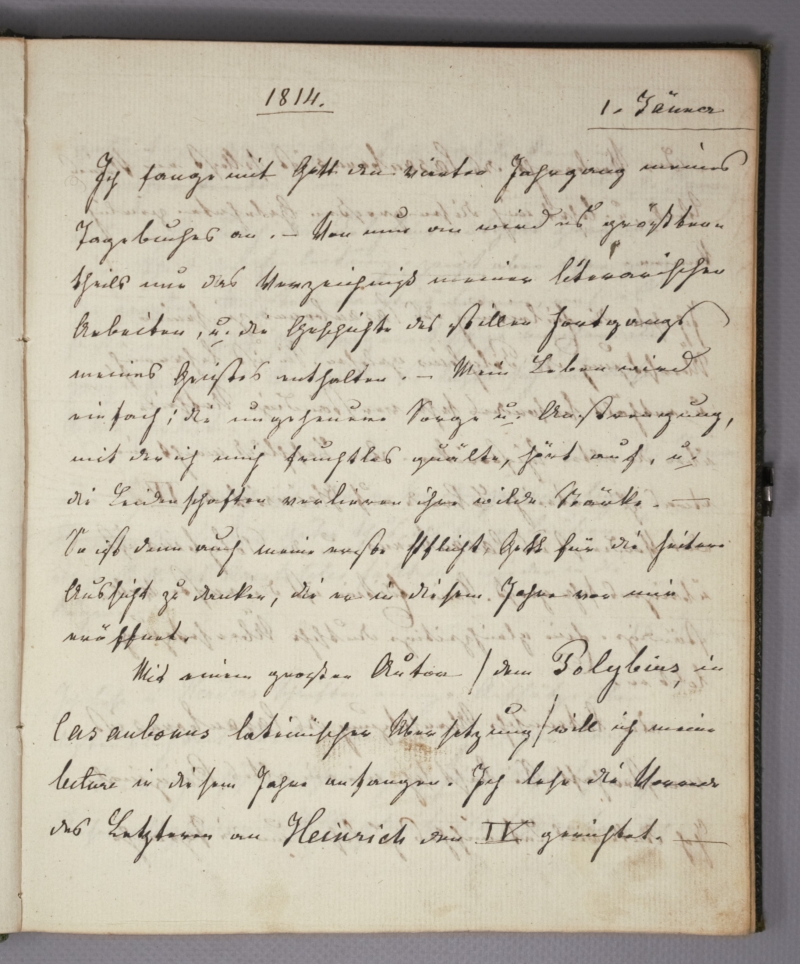 1814.
1. Jänner
Ich fange mit Gott den vierten Jahrgang meines
Tagebuches an. – Von nun an wird es größten
theils nur das Verzeichniß meiner literärischen
Arbeiten, u. die Geschichte des stillen Fortgangs
meines Geistes enthalten. – Mein Leben wird
einfach; die ungeheuere Sorge u. Anstrengung,
mit der ich mich fruchtlos quälte, hört auf, u.
die Leidenschaften verlieren ihre wilde Stärke. –
So ist denn auch meine erste Pflicht Gott für die heitere
Aussicht zu danken, die er in diesem Jahre vor mir
eröffnet.
Mit einem großen Autor / dem Polybius, in
Casaubonus lateinischer Übersetzung / will ich meine
lecture in diesem Jahre anfangen. Ich lese die Vorrede
des Letzteren an Heinrich den IV gerichtet. –